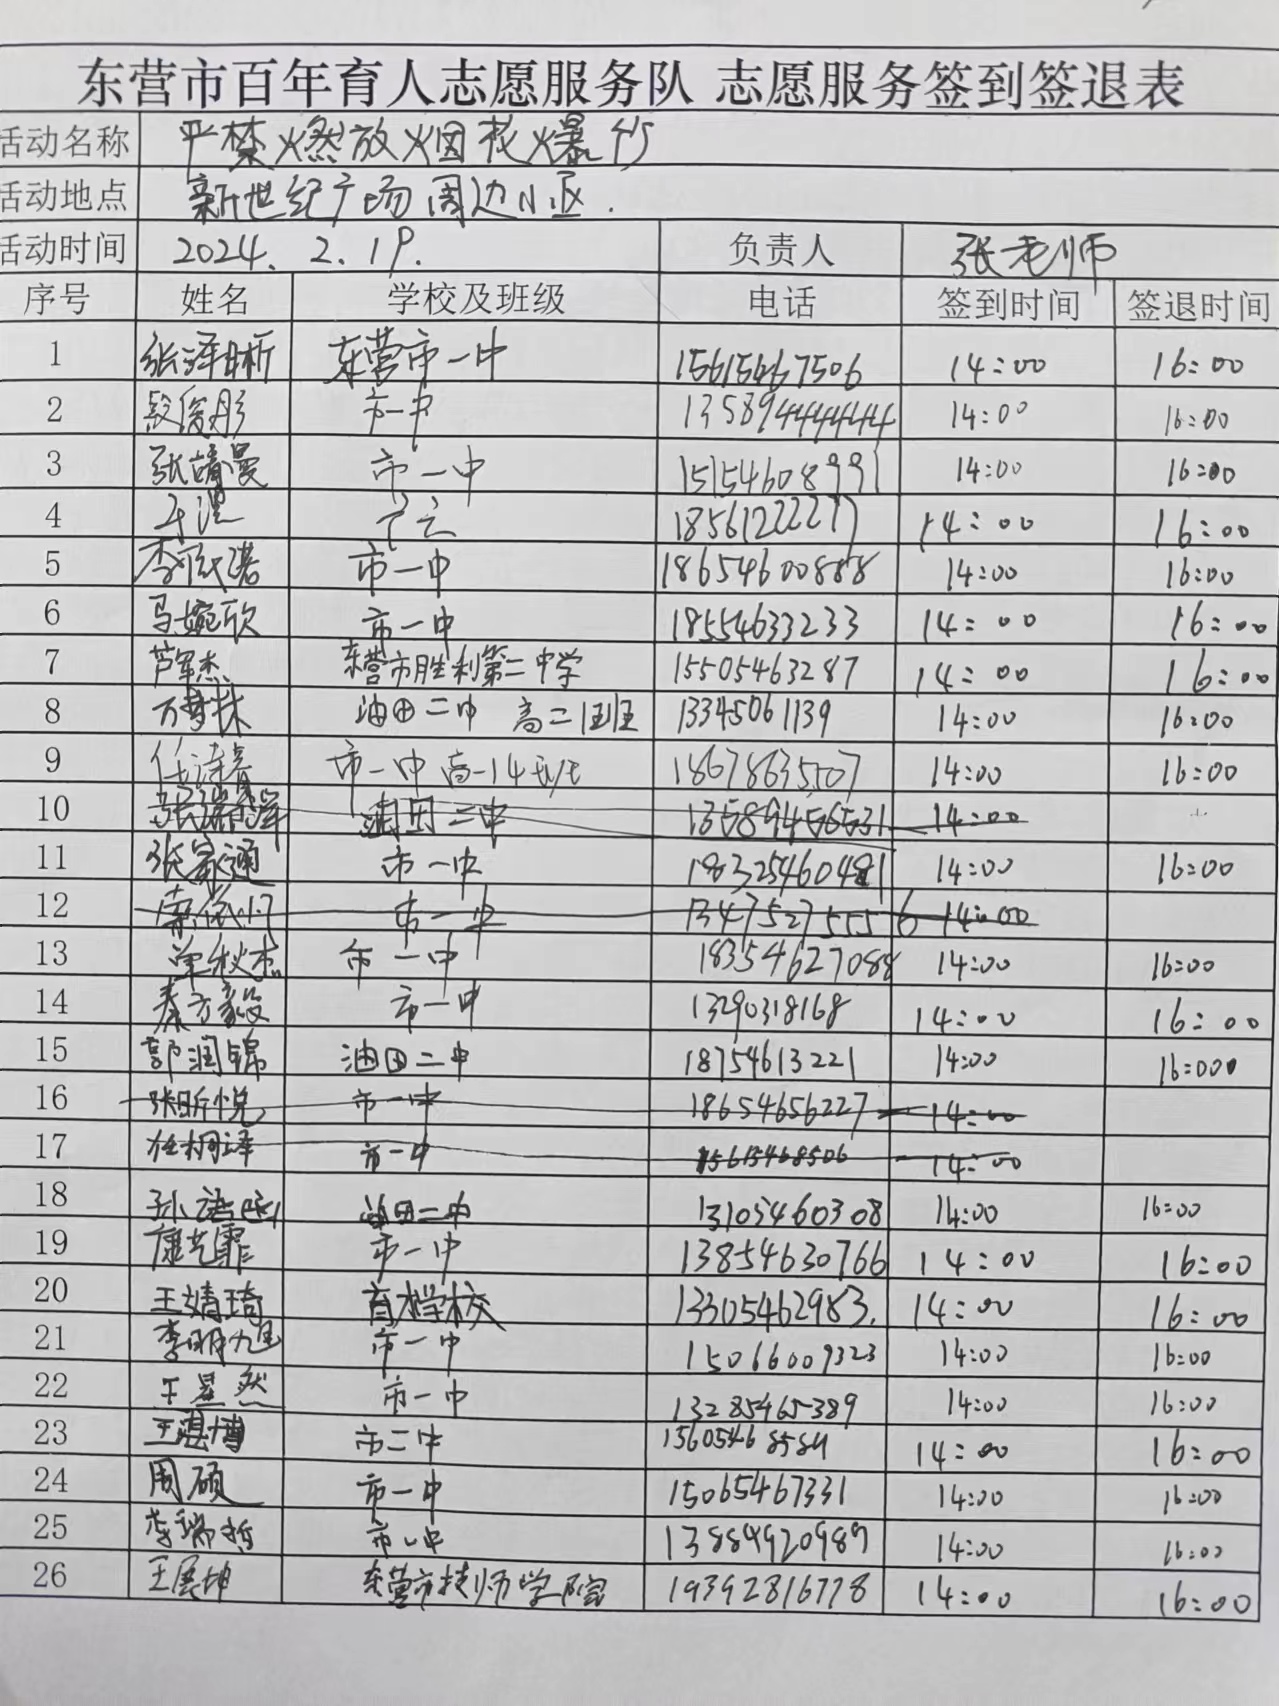 东营市百年育人志愿服务队 志愿服务签到签退表
活动名称 严禁燃放烟花爆竹
活动地点 新世纪广场周边小区.
活动时间 2024. 2. 19. 负责人 张老师
序号 姓名 学校及班级 电话 签到时间 签退时间
1 张泽昕 东营市一中 15615467506 14:00 16:00
2 段俊彤 市一中 13589444444 14:00 16:00
3 张靖曼 市一中 15154608991 14:00 16:00
4 18561222277 14:00 16:00
5 市一中 18654600888 14:00 16:00
6 马婉欣 市一中 18554633233 14:00 16:00
7 芦军杰 东营市胜利第二中学 15505463287 14:00 16:00
8 万梦林 油田二中 高二1班 13345061139 14:00 16:00
9 市一中 高一14班 18678635507 14:00 16:00
10 油田二中 14:00
11 张家通 市一中 14:00 16:00
12 市一中 13475275556 14:00
13 单秋杰 市一中 18354627088 14:00 16:00
14 秦方毅 市一中 13290318168 14:00 16:00
15 郭润锦 油田二中 18754613221 14:00 16:000
16 张昕悦 市一中 18654656227 14:00
17 任桐泽 市一中 15615468506 14:00
18 油田二中 13105460308 14:00 16:00
19 康艺霏 市一中 13854630766 14:00 16:00
20 王靖琦 育才学校 13305462983. 14:00 16:00
21 李明旭 市一中 15066009323 14:00 16:00
22 王星然 市一中 13285465389 14:00 16:00
23 王湛博 市二中 14:00 16:00
24 周硕 市一中 15065467331 14:00 16:00
25 李瑞哲 市一中 13884920989 14:00 16:00
26 王展坤 东营市技师学院 19392816778 14:00 16:00